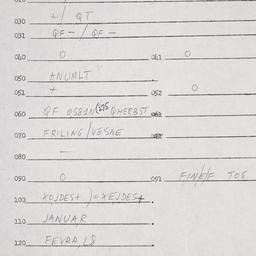 030 +/ QT
031 QF - / QF -
040 0 041 0
050 ANUMLT
051 + 052 0
060 QF 0581N QHERBST 061
070 FRILING/VESNE
080 —
090 0 091 FIN/F TOE
100 XOJDEST )= XEJDEST.
110 JANUAR
120 FEVRAL8